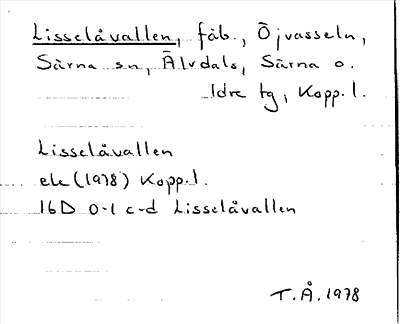 Lisselåvallen, fäb., Öjvasseln,
Särna sn, Älvdals, Särna o.
Idre tg, Kopp. l.
Lisselåvallen
ek (1978) Kopp. l.
16D 0-1 c-d Lisselåvallen
T.Å. 1978